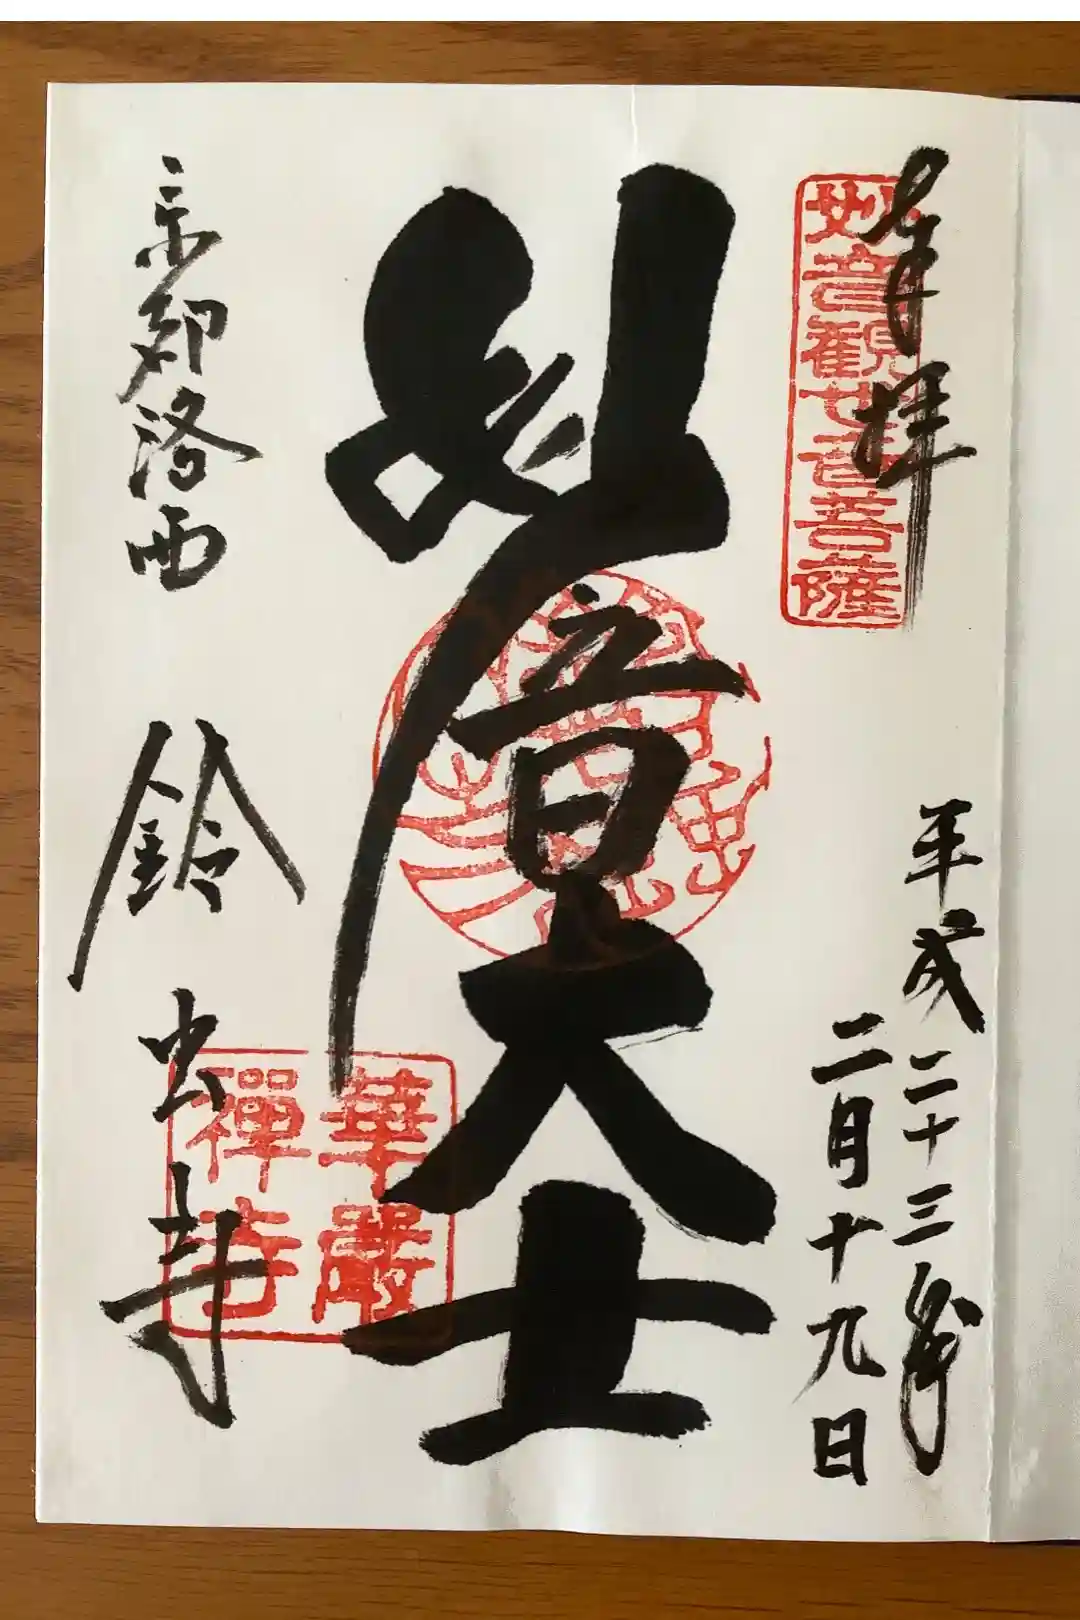 奉拝
妙音観世音菩薩
平成二十三年
二月十九日
妙音大士
華厳
禅寺
京都洛西
鈴虫寺